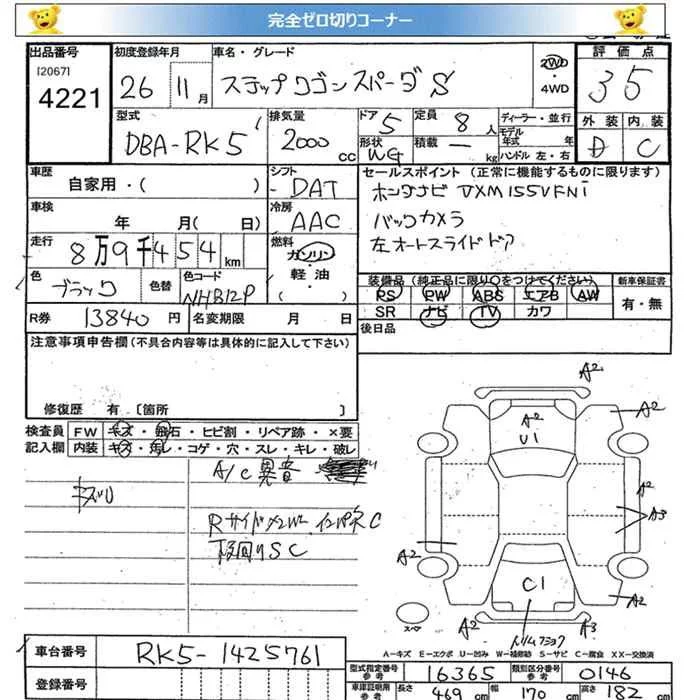 完全ゼロ切りコーナー
出品番号 初度登録年月 車名・グレード 評価点
[2067] 4221 26 11月 ステップワゴンスパーダS 2WD ・ 4WD 35
型式 排気量 ドア 5 定員 8人 ディーラー・並行 外装 内装
DBA-RK5 2000cc 形状 WG 積載 ー kg モデル年式 年 D C
ハンドル 左・右
車歴 シフト セールスポイント (正常に機能するものに限ります)
自家用・( ) DAT ホンダナビ VXM155VFNi
車検 冷房 バックカメラ
年 月(日) AAC 左オートスライドドア
走行 8万9千454km 燃料 ガソリン・軽・油・( )
色 ブラック 色替 色コード NHB12P
装備品(純正品に限り○をつけてください) 新車保証書
PS PW ABS エアB AW 有・無
SR ナビ TV カワ
R券 13840円 名変期限 月 日 後日品
注意事項申告欄(不具合内容等は具体的に記入して下さい)
修復歴 有 〔箇所 〕
検査員 FW キズ・飛石・ヒビ割・リペア跡・×要
記入欄 内装 キズ・汚レ・コゲ・穴・スレ・キレ・破レ
A/C異音
キズU
下廻りSC
A2
A2
A2
U1
A2
A3
A2
A2
C1
A2
A2
A3
スペア
A-キズ E-エクボ U-凹ミ W-補修跡 S-サビ C-腐食 XX-交換済
車台番号 RK5-1425761
登録番号
型式指定番号参考 16365 類別区分番号参考 0146
車庫証明用参考 長さ 469cm 幅 170cm 高さ 182cm